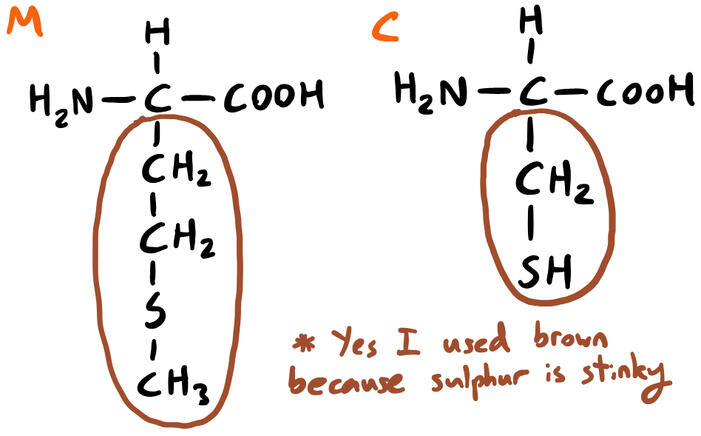 M
H
H₂N—C—COOH
CH₂
CH₂
S
CH₃
C
H
H₂N—C—COOH
CH₂
SH
* Yes I used brown
because sulphur is stinky